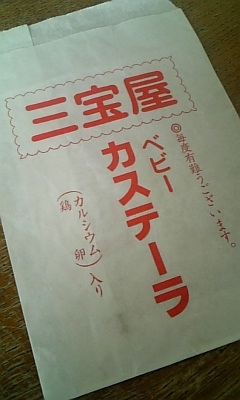 三宝屋
◎毎度有難うございます。
ベビー
カステーラ
(カルシウム
鶏卵)入り